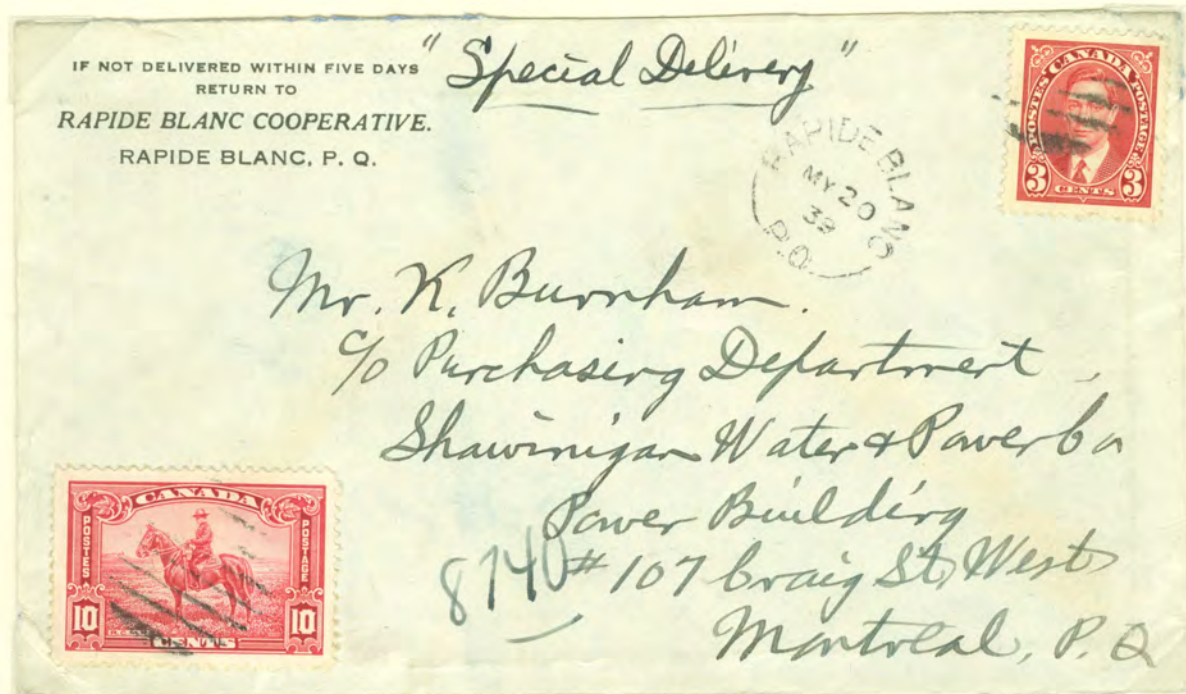 IF NOT DELIVERED WITHIN FIVE DAYS
RETURN TO
RAPIDE BLANC COOPERATIVE.
RAPIDE BLANC, P. Q.
"Special Delivery"
CANADA
POSTES POSTAGE
3 CENTS 3
RAPIDE BLANC
MY 20
39
P.Q.
Mr. K. Burnham.
c/o Purchasing Department,
Shawinigan Water & Power Co
Power Building
#107 Craig St, West
Montreal, P. Q
8740
CANADA
POSTES POSTAGE
10 CENTS 10